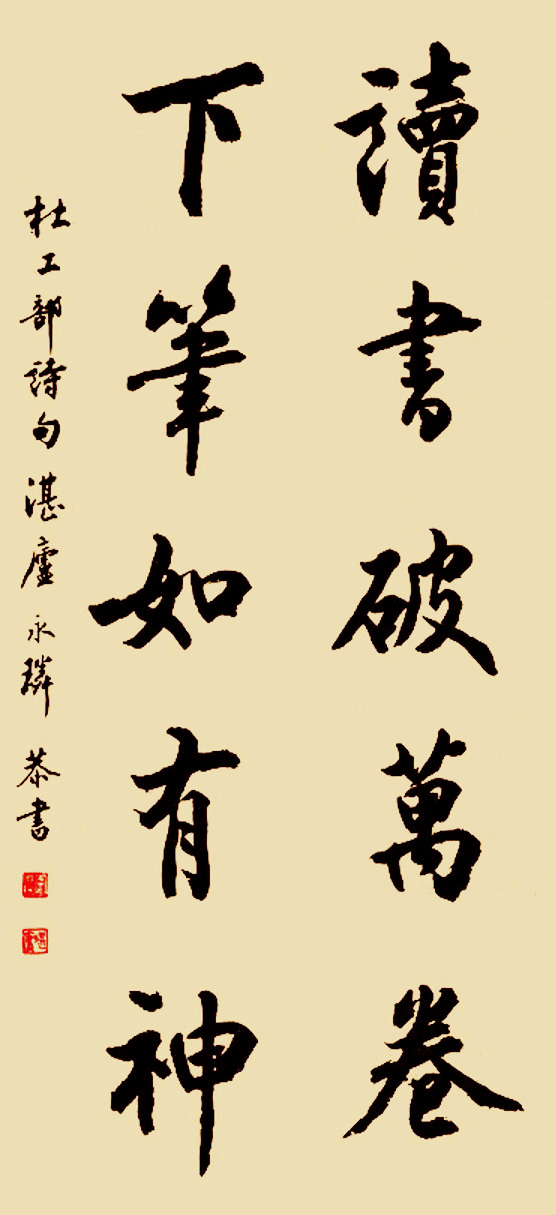 讀書破萬卷
下筆如有神
杜工部詩句 湛廬 永璘 恭書